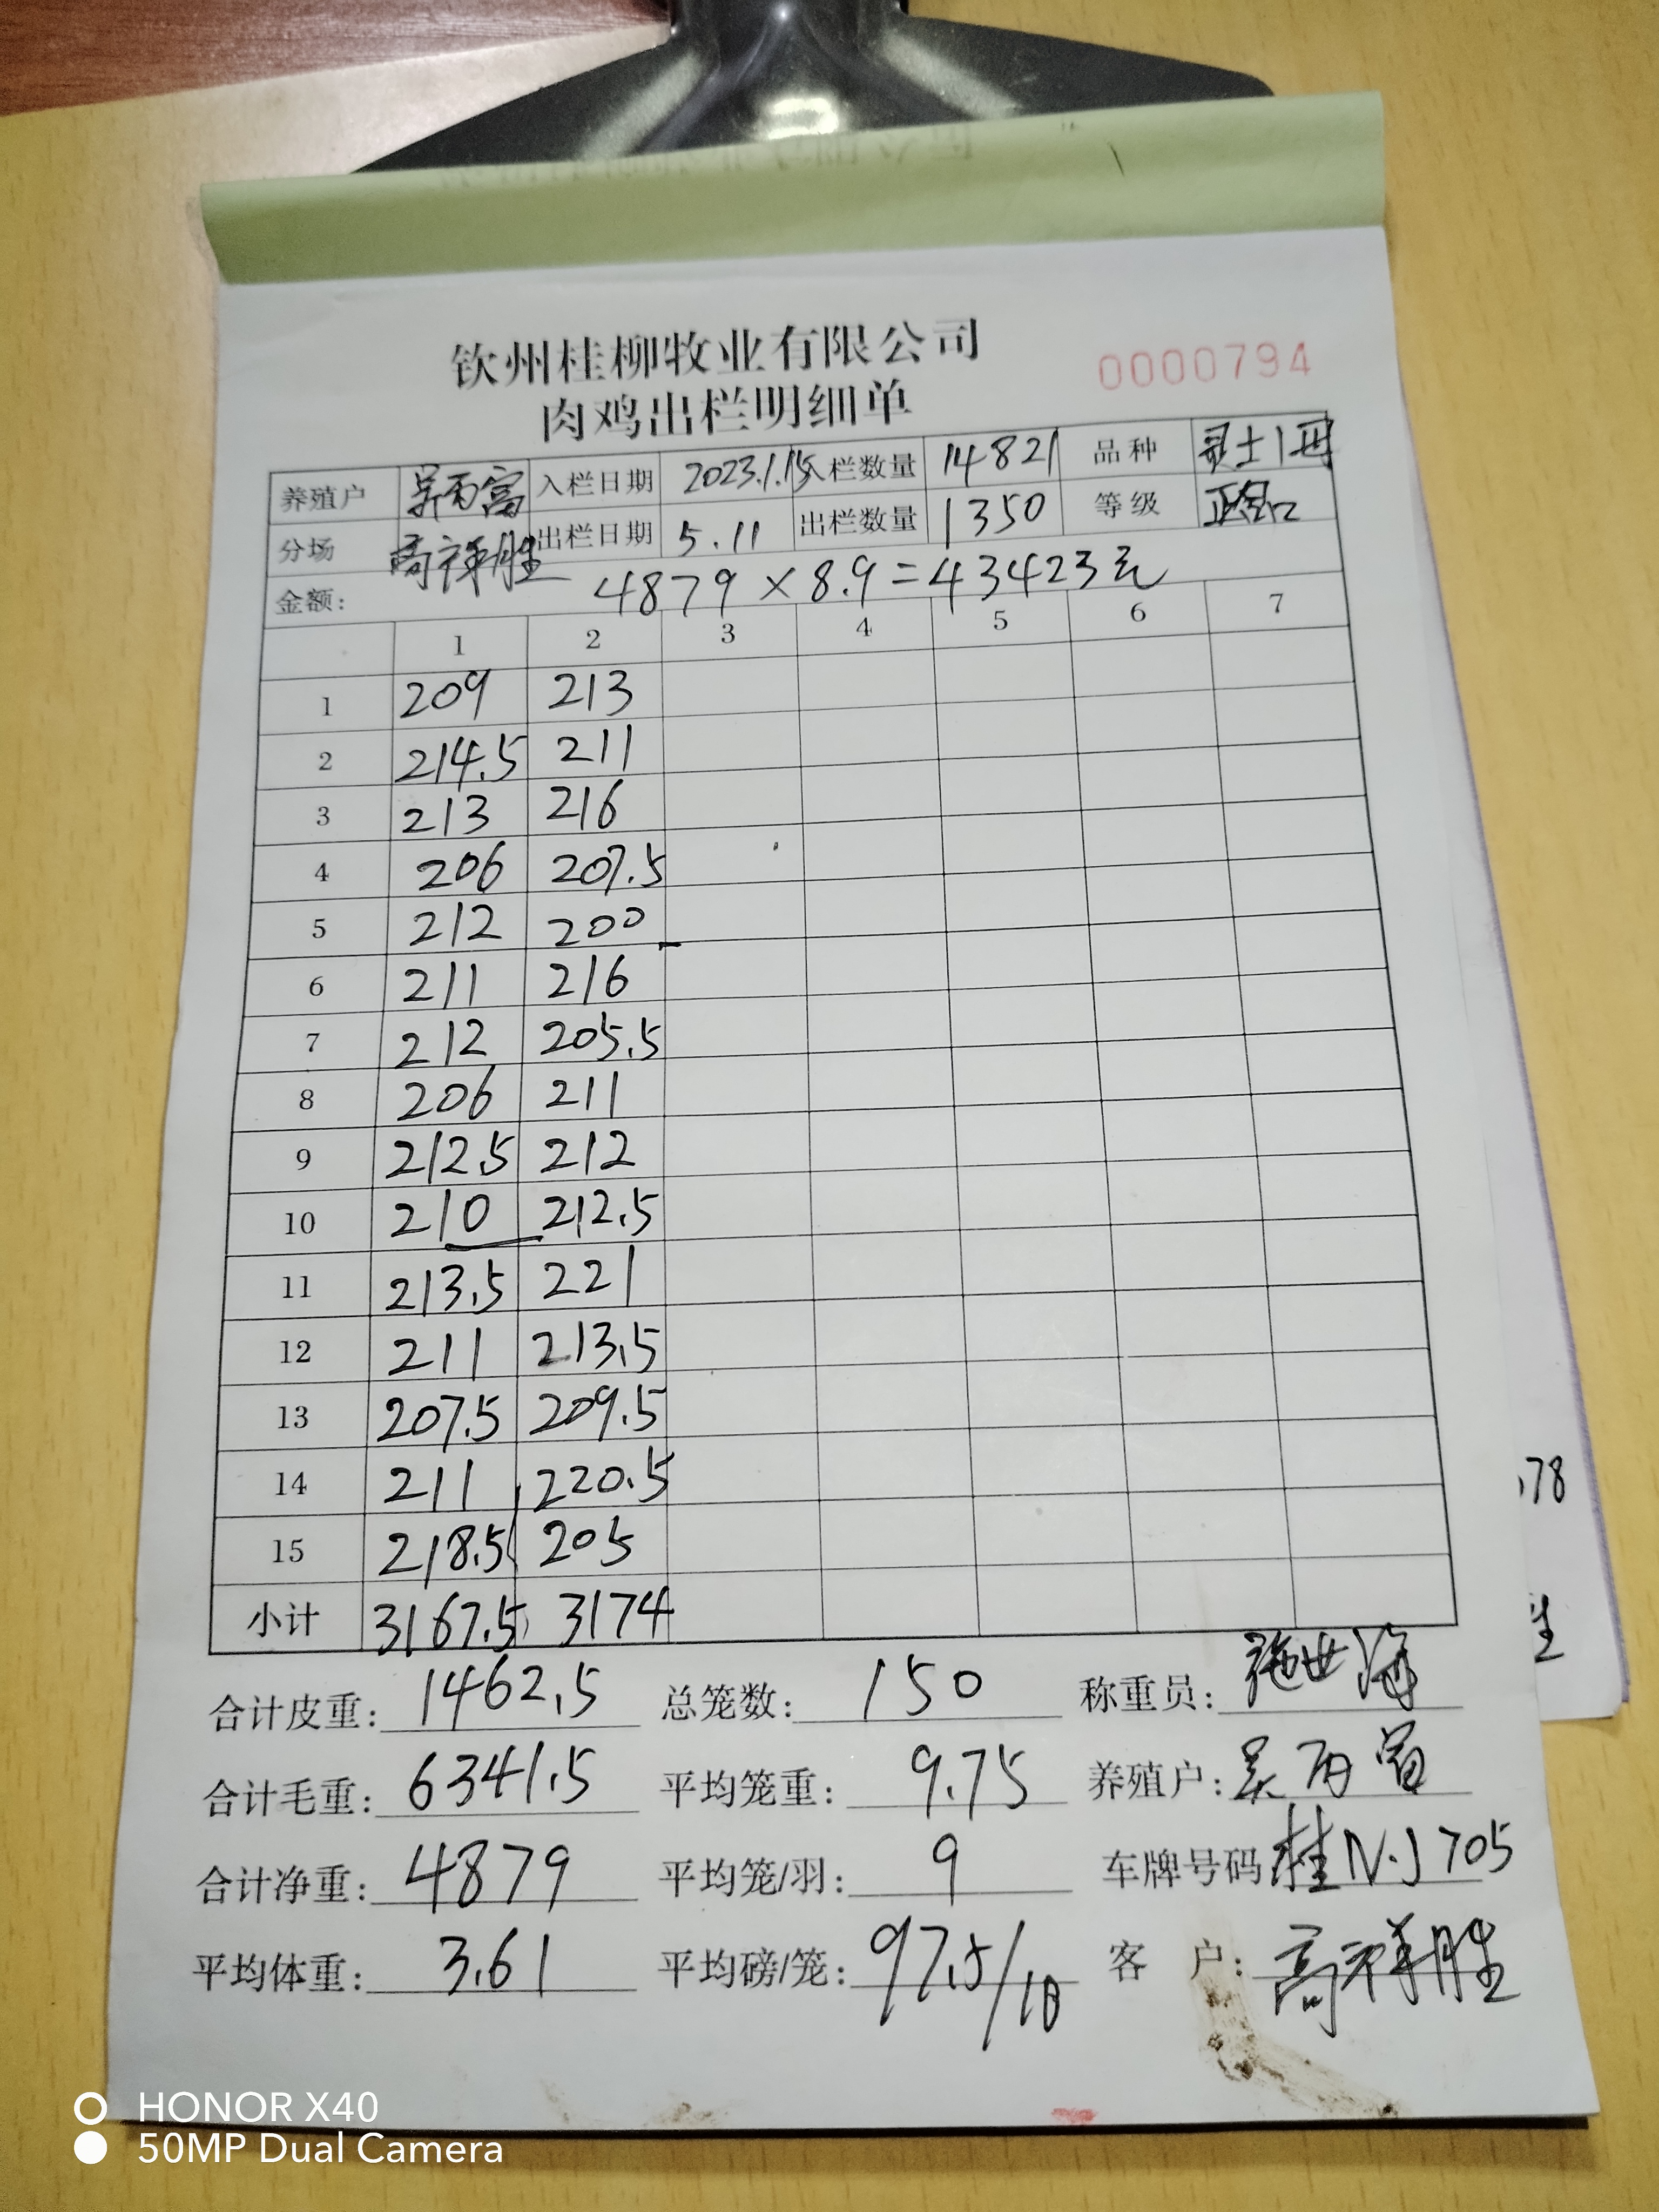 钦州桂柳牧业有限公司
肉鸡出栏明细单
0000794
养殖户 吴丙富 入栏日期 2023.1.15 入栏数量 14821 品种 灵士1母
分场 高祥胜 出栏日期 5.11 出栏数量 1350 等级 正品
金额: 4879 × 8.9 = 43423元
1 2 3 4 5 6 7
1 209 213
2 214.5 211
3 213 216
4 206 207.5
5 212 200
6 211 216
7 212 205.5
8 206 211
9 212.5 212
10 210 212.5
11 213.5 221
12 211 213.5
13 207.5 209.5
14 211 220.5
15 218.5 205
小计 3167.5 3174
合计皮重: 1462.5 总笼数: 150 称重员:
合计毛重: 6341.5 平均笼重: 9.75 养殖户: 吴丙富
合计净重: 4879 平均笼/羽: 9 车牌号码 桂N·J705
平均体重: 3.61 平均磅/笼: 97.5/10 客户: 高祥胜
.78
胜
HONOR X40
50MP Dual Camera